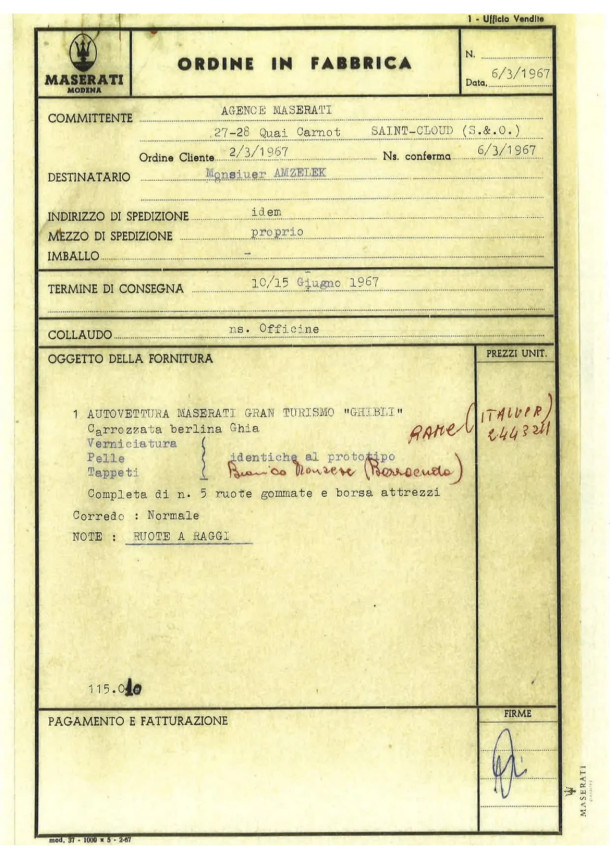 1 - Ufficio Vendite
MASERATI
MODENA
ORDINE IN FABBRICA
N.
Data, 6/3/1967
COMMITTENTE AGENCE MASERATI
27-28 Quai Carnot SAINT-CLOUD (S.&.O.)
Ordine Cliente 2/3/1967 Ns. conferma 6/3/1967
DESTINATARIO Monsiuer AMZELEK
INDIRIZZO DI SPEDIZIONE idem
MEZZO DI SPEDIZIONE proprio
IMBALLO -
TERMINE DI CONSEGNA 10/15 Giugno 1967
COLLAUDO ns. Officine
OGGETTO DELLA FORNITURA PREZZI UNIT.
1 AUTOVETTURA MASERATI GRAN TURISMO "GHIBLI"
Carrozzata berlina Ghia
RAME (ITALVER)
Verniciatura
Pelle identiche al prototipo
Tappeti
Completa di n. 5 ruote gommate e borsa attrezzi
Corredo : Normale
NOTE : RUOTE A RAGGI
115.010
PAGAMENTO E FATTURAZIONE FIRME
MASERATI
mod. 27 - 1000 x 5 - 2-67